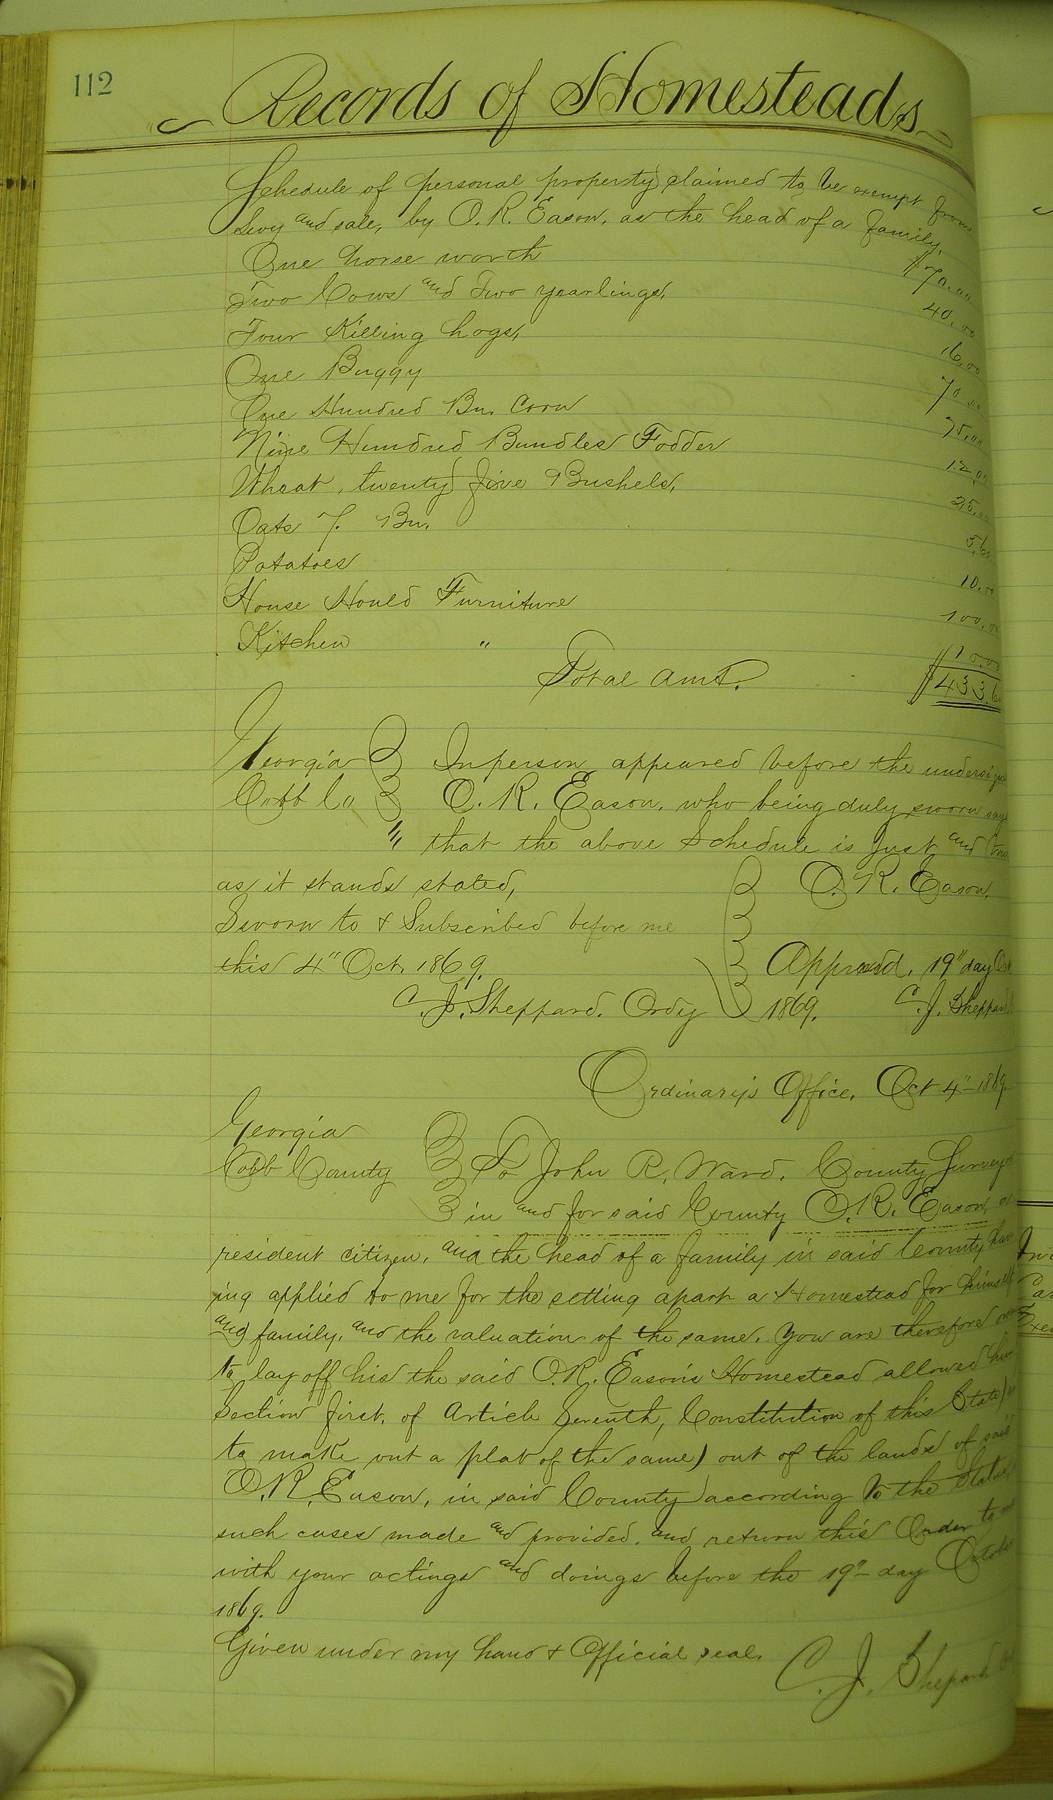 112
Records of Homesteads
Schedule of personal property claimed to be exempt from
Levy and sale, by O. R. Eason, as the head of a family.
One horse worth $70.00
Two Cows and Two yearlings, 40.00
Four Killing hogs, 16.00
One Buggy 70.00
One Hundred Bu. Corn 75.00
Nine Hundred Bundles Fodder 12.00
Wheat, twenty five Bushels, 25.00
Oats 7. Bu. 5.60
Potatoes 10.00
House Hould Furniture 100.00
Kitchen " 10.00
Total amt. $433.60
Georgia In person appeared before the
Cobb Co O. R. Eason, who being duly sworn says
that the above Schedule is Just and true
as it stands stated, O. R. Eason.
Sworn to & Subscribed before me
this 4" Oct. 1869. Approved, 19" day
C. J. Sheppard. Ordy 1869. C. J. Sheppard
Ordinary's Office, Oct 4" 1869
Georgia
Cobb County To John R. Ward. County Surveyor
in and for said County O. R. Eason,
resident citizen, and the head of a family in said County hav
ing applied to me for the setting apart a Homestead for himself
and family, and the valuation of the same. You are therefore
to lay off his the said O. R. Eason's Homestead allowed
Section first, of Article Seventh, Constitution of this State)
to make out a plat of the same) out of the lands of said
O. R. Eason, in said County according to the Statue
such cases made and provided. and return this Order to
with your actings and doings before the 19" day October
1869.
Given under my hand & Official seal.
C. J. Shepard